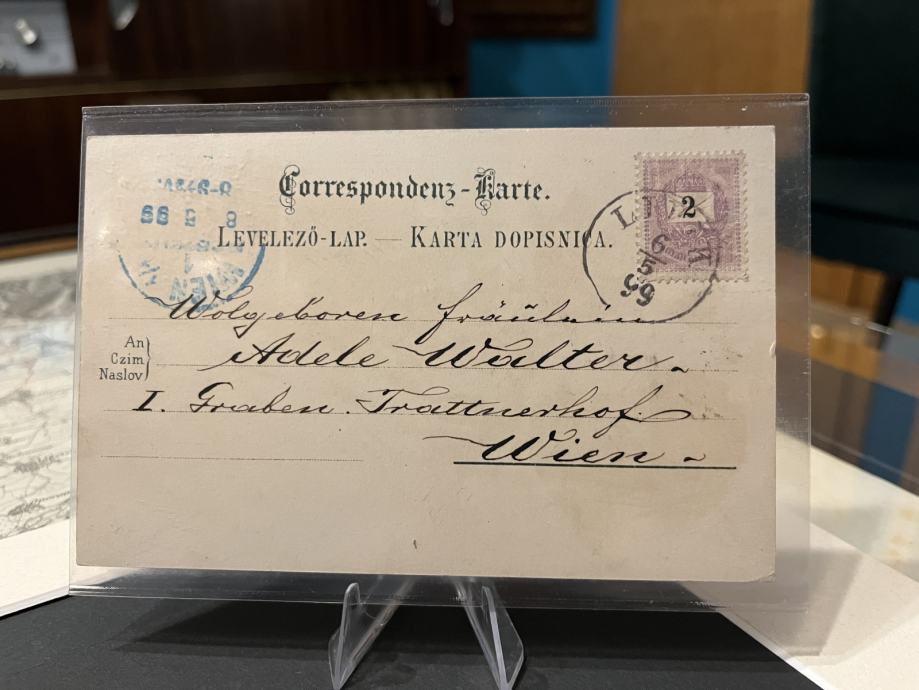 Correspondenz-Karte.
LEVELEZŐ-LAP. — KARTA DOPISNICA.
2
6
5
99
8 5 99
WIEN
1
Wolgeboren fräulein
An
Czim
Naslov
Adele Walter.
I. Graben. Trattnerhof.
Wien.